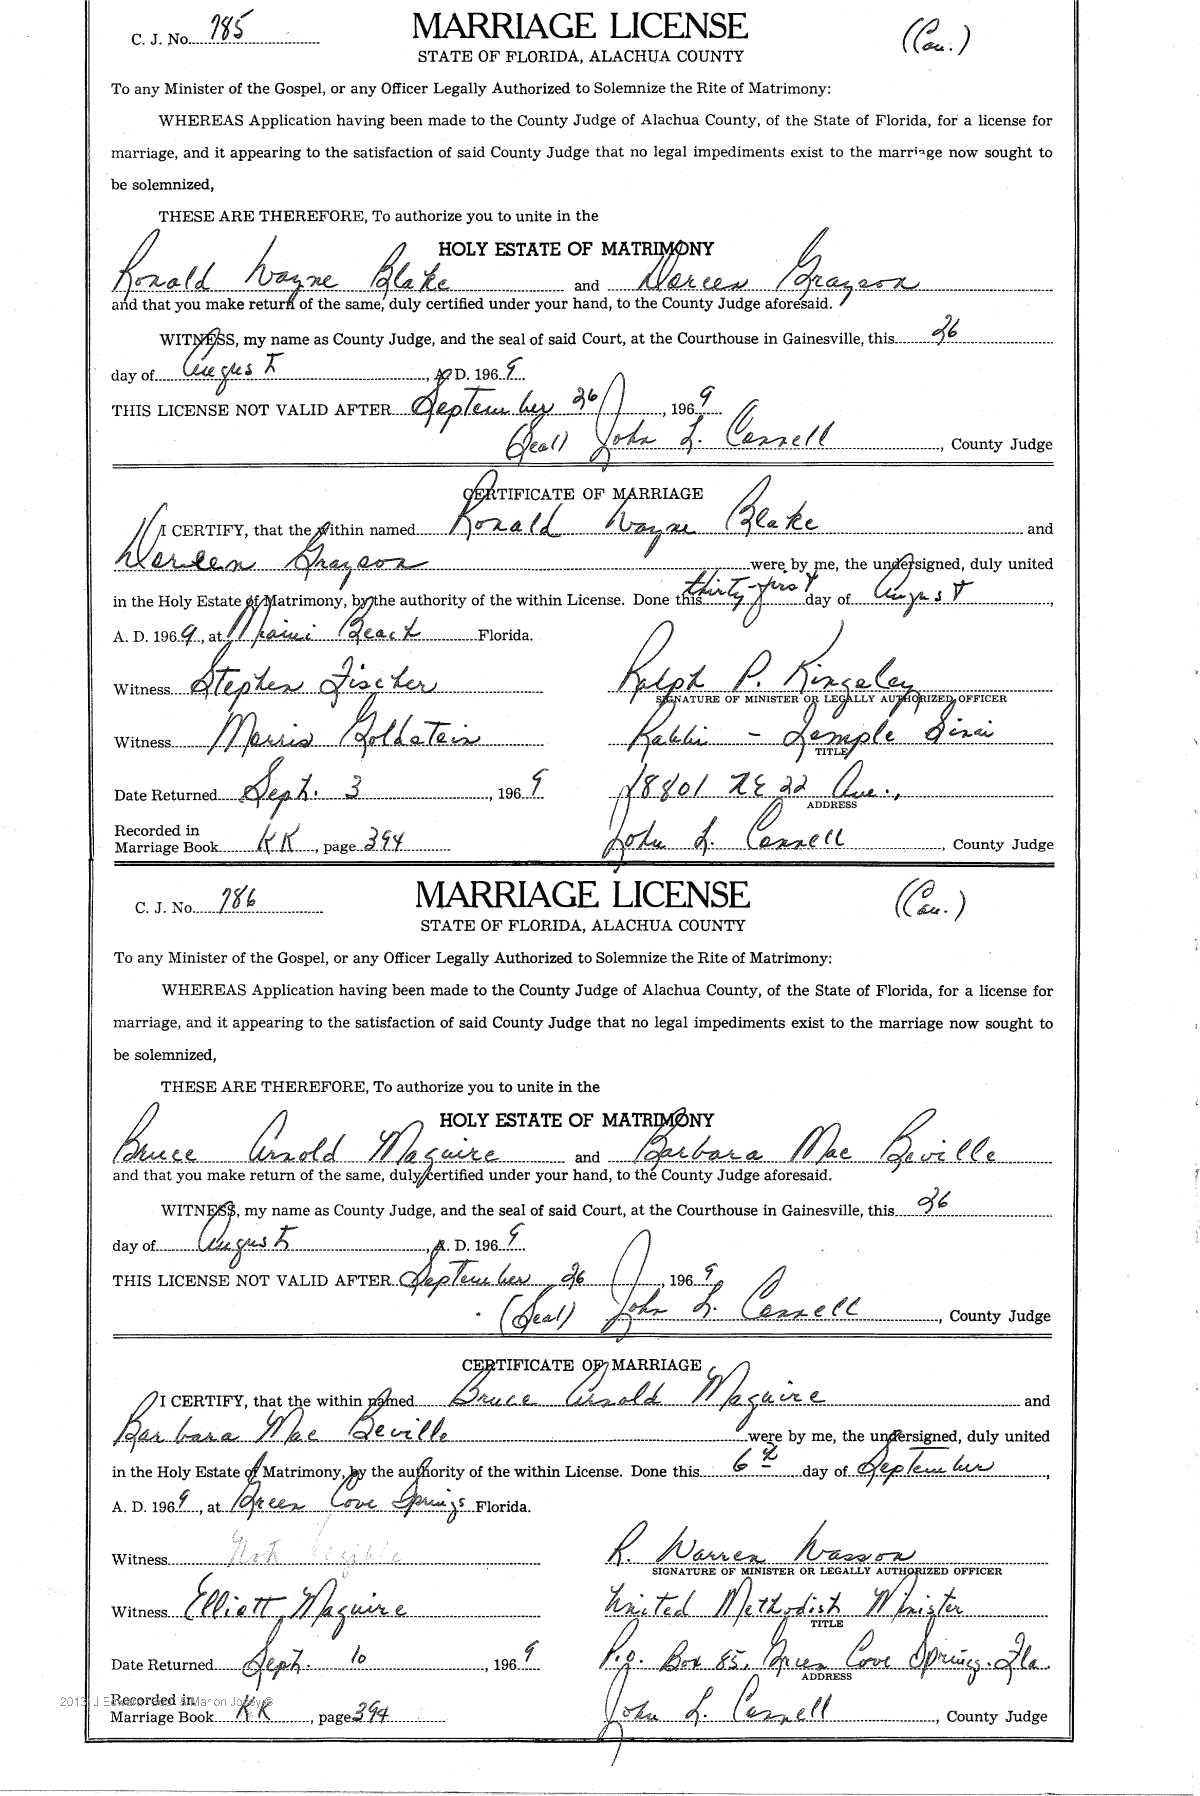 C. J. No. 785 MARRIAGE LICENSE (Cau.)
STATE OF FLORIDA, ALACHUA COUNTY
To any Minister of the Gospel, or any Officer Legally Authorized to Solemnize the Rite of Matrimony:
WHEREAS Application having been made to the County Judge of Alachua County, of the State of Florida, for a license for
marriage, and it appearing to the satisfaction of said County Judge that no legal impediments exist to the marriage now sought to
be solemnized,
THESE ARE THEREFORE, To authorize you to unite in the
HOLY ESTATE OF MATRIMONY
Ronald Wayne Blake and Doreen Grayson
and that you make return of the same, duly certified under your hand, to the County Judge aforesaid.
WITNESS, my name as County Judge, and the seal of said Court, at the Courthouse in Gainesville, this 26
day of August, A. D. 1969
THIS LICENSE NOT VALID AFTER September 26, 1969
(Seal) John L. Connell, County Judge
CERTIFICATE OF MARRIAGE
I CERTIFY, that the within named Ronald Wayne Blake and
Doreen Grayson were by me, the undersigned, duly united
in the Holy Estate of Matrimony, by the authority of the within License. Done this thirty-first day of August,
A. D. 1969, at Miami Beach Florida.
Witness Stephen Fischer Ralph P. Kingsley
SIGNATURE OF MINISTER OR LEGALLY AUTHORIZED OFFICER
Witness Morris Goldstein Rabbi - Temple Sinai
TITLE
Date Returned Sept. 3, 1969 18801 NE 22 Ave.,
ADDRESS
Recorded in
Marriage Book KK, page 394 John L. Connell, County Judge
C. J. No. 786 MARRIAGE LICENSE (Cau.)
STATE OF FLORIDA, ALACHUA COUNTY
To any Minister of the Gospel, or any Officer Legally Authorized to Solemnize the Rite of Matrimony:
WHEREAS Application having been made to the County Judge of Alachua County, of the State of Florida, for a license for
marriage, and it appearing to the satisfaction of said County Judge that no legal impediments exist to the marriage now sought to
be solemnized,
THESE ARE THEREFORE, To authorize you to unite in the
HOLY ESTATE OF MATRIMONY
Bruce Arnold Maguire and Barbara Mae Beville
and that you make return of the same, duly certified under your hand, to the County Judge aforesaid.
WITNESS, my name as County Judge, and the seal of said Court, at the Courthouse in Gainesville, this 26
day of August, A. D. 1969
THIS LICENSE NOT VALID AFTER September 26, 1969
(Seal) John L. Connell, County Judge
CERTIFICATE OF MARRIAGE
I CERTIFY, that the within named Bruce Arnold Maguire and
Barbara Mae Beville were by me, the undersigned, duly united
in the Holy Estate of Matrimony, by the authority of the within License. Done this 6th day of September,
A. D. 1969, at Green Cove Springs Florida.
Witness Not legible R. Warren Wasson
SIGNATURE OF MINISTER OR LEGALLY AUTHORIZED OFFICER
Witness Elliott Maguire United Methodish Minister
TITLE
Date Returned Sept. 10, 1969 P.O. Box 85, Green Cove Springs. Fla.
ADDRESS
Recorded in
Marriage Book KK, page 394 John L. Connell, County Judge